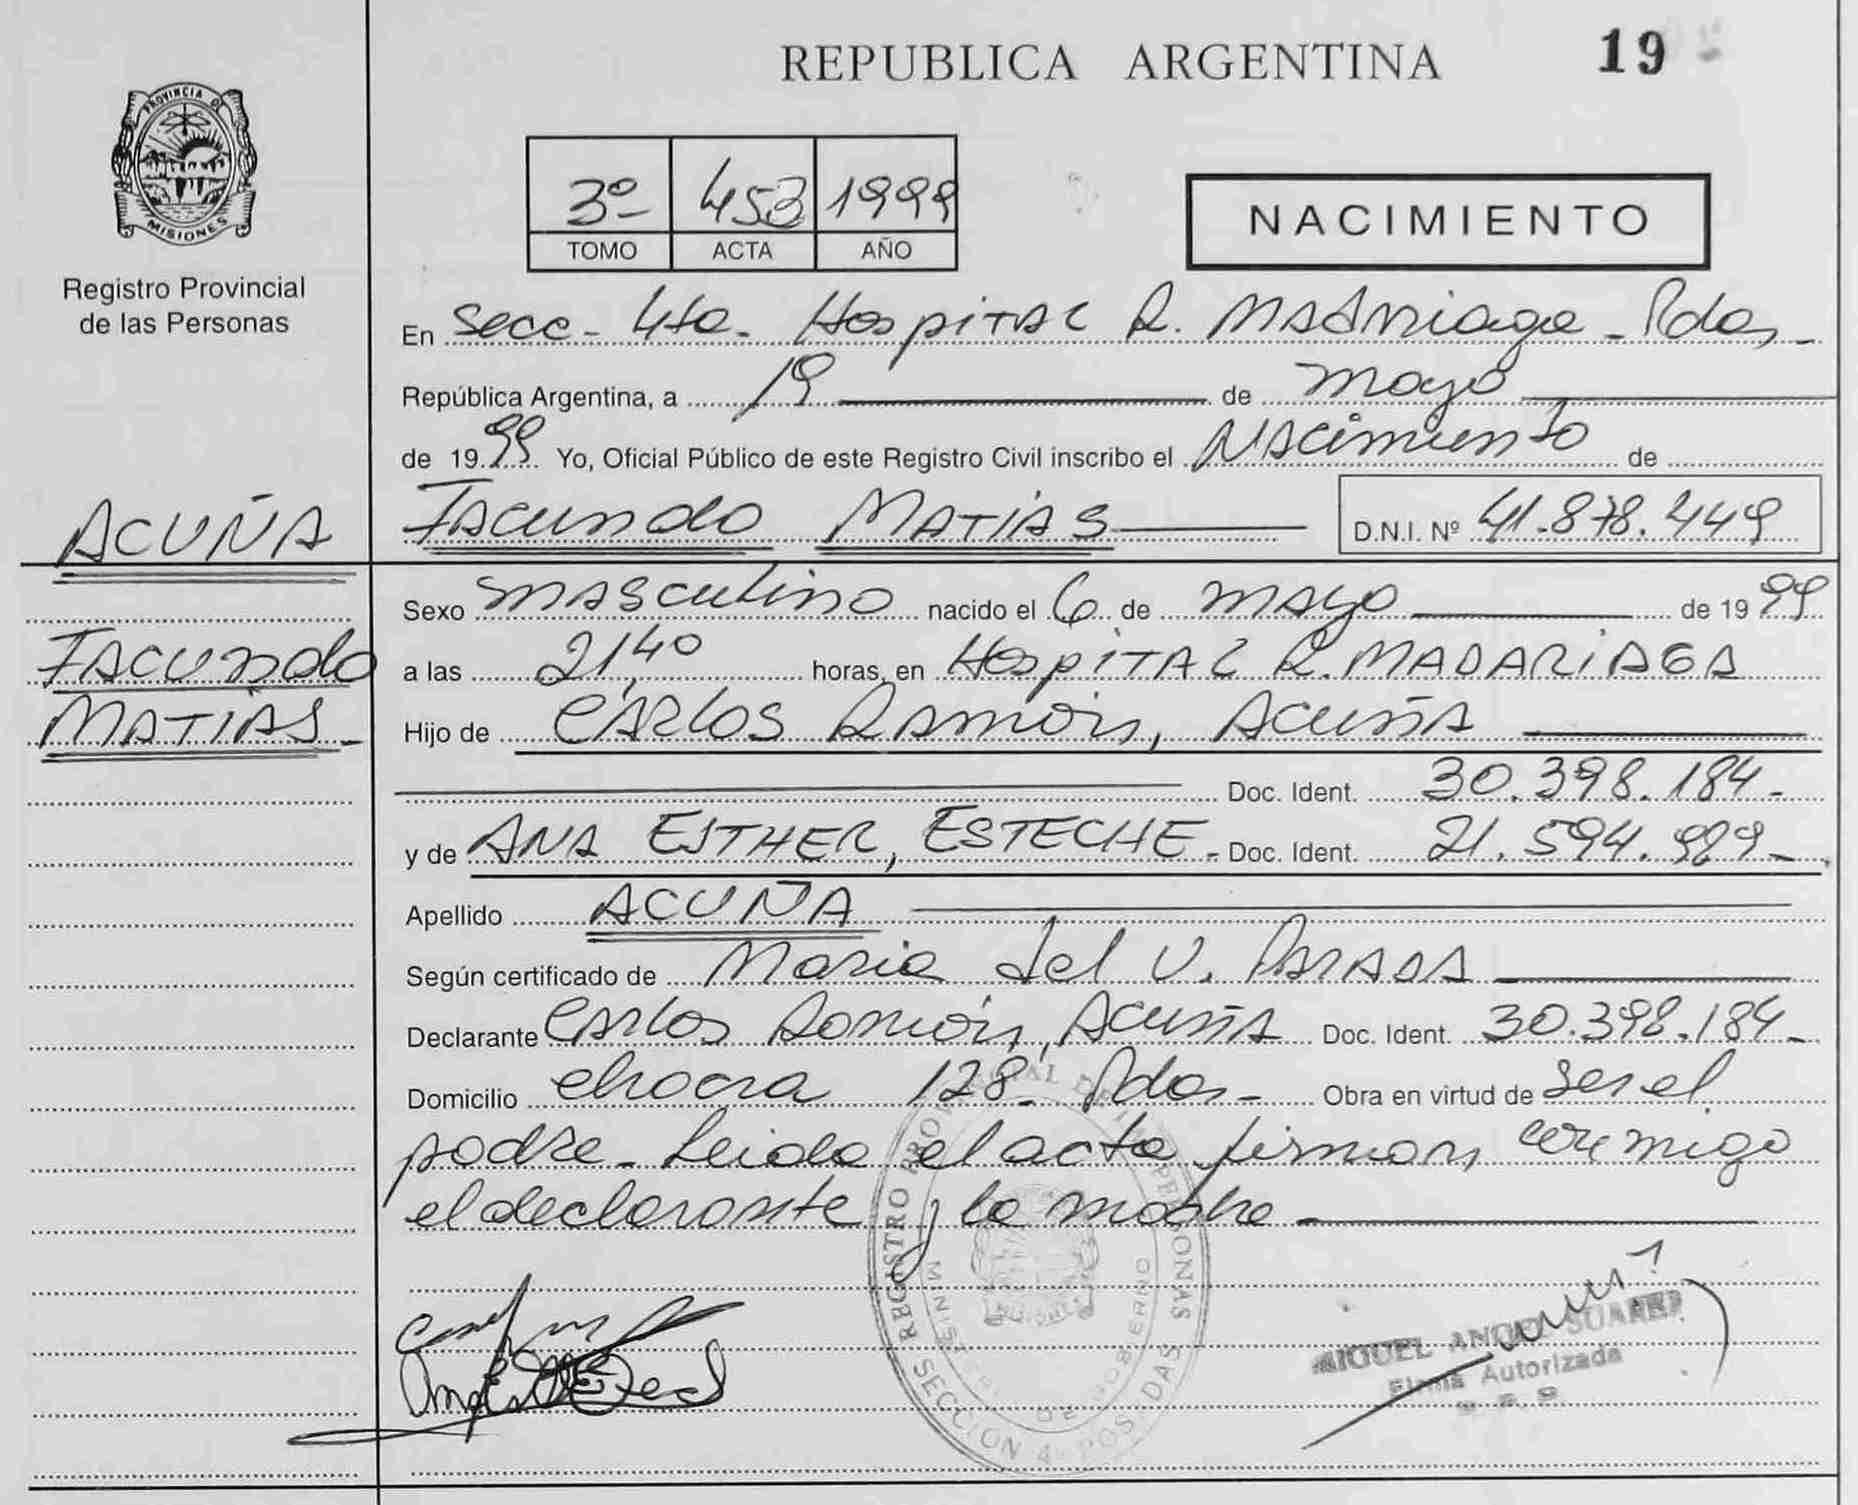 REPUBLICA ARGENTINA
19
PROVINCIA DE
MISIONES
Registro Provincial
de las Personas
3º 453 1999
TOMO ACTA AÑO
NACIMIENTO
En Secc- 4ta- Hospital R. Madariaga - Pdas,-
República Argentina, a 19 de mayo
de 1999 Yo, Oficial Público de este Registro Civil inscribo el Nacimiento de
Facundo Matías D.N.I. Nº 41.878.449
ACUÑA
Facundo
Matías-
Sexo masculino nacido el 6 de mayo de 1999
a las 21,40 horas, en Hospital R. MADARiAGA
Hijo de CARLOS Ramón, Acuña
Doc. Ident. 30.398.184-
y de ANA ESTHER, ESTECHE- Doc. Ident. 21.594.929-
Apellido ACUÑA
Según certificado de Maria del V. PARADA
Declarante Carlos Ramón, Acuña Doc. Ident. 30.398.184-
Domicilio 128- Pdas- Obra en virtud de ser el
padre- Leida el acta firman conmigo
el declarante y la madre-
REGISTRO PROVINCIAL DE LAS PERSONAS
MINISTERIO DE GOBIERNO
SECCION 4- POSADAS
MIGUEL ANGEL SUAREZ
Firma Autorizada